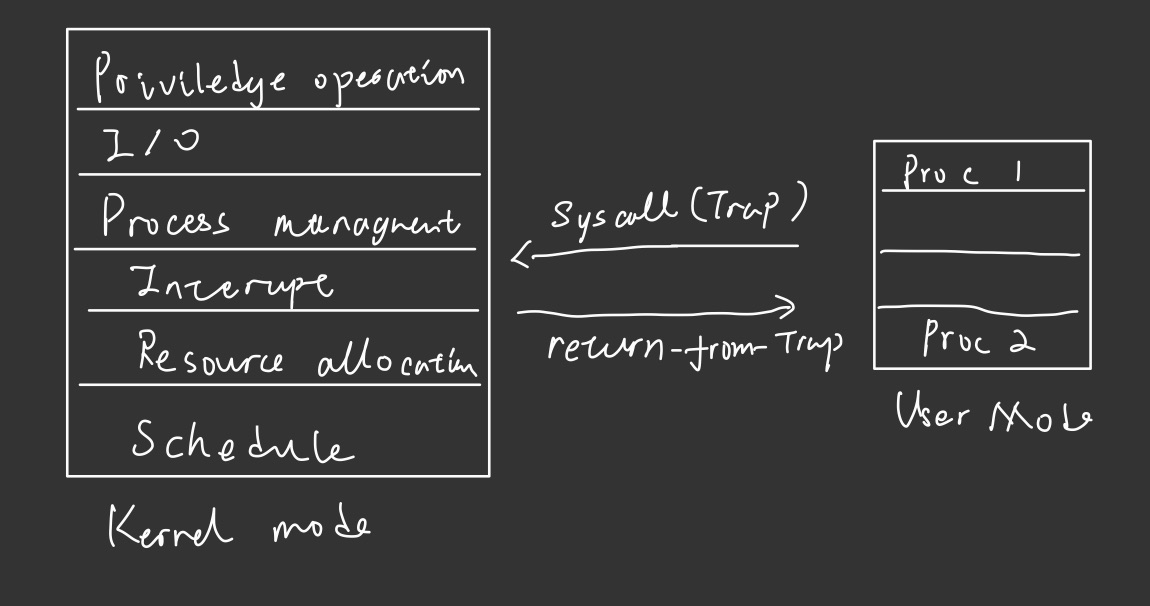 Priviledge operation
I/O
Process managment
Interupt
Resource allocation
Schedule
Kernel mode
Syscall (Trap)
return-from-Trap
Proc 1
Proc 2
User Mode